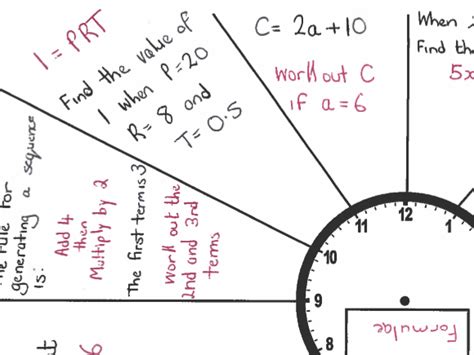 I = PRT
Find the value of
I when P=20
R= 8 and
T= 0.5
C= 2a+10
Work out C
if a=6
When
Find the
5x
The rule for
generating a sequence
is:
Add 4
then
Multiply by 2
The first term is 3
Work out the
2nd and 3rd
terms
11
12
1
10
9
8
Formulae
6